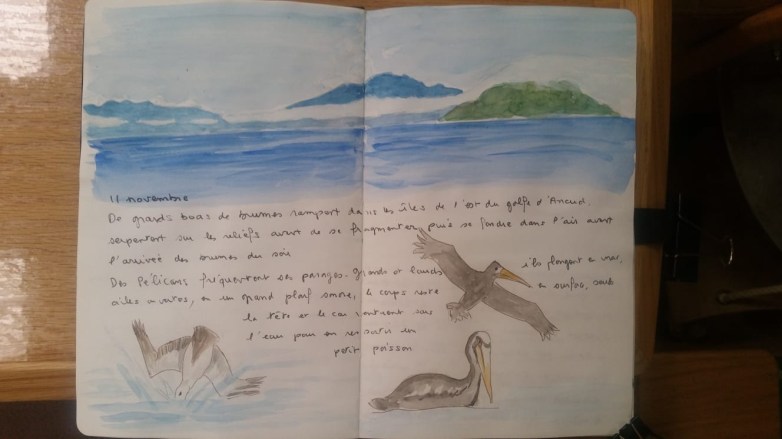 11 novembre
De grands boas de brumes rampent dans les îles de l'est du golfe d'Ancud,
serpentent sur les reliefs avant de se fragmenter puis se fondre dans l'air avant
l'arrivée des brumes du soir
Des Pélicans fréquentent ces parages. Grands et lourds ils plongent en vrac,
ailes ouvertes, en un grand plouf sonore, le corps reste en surface, seuls
la tête et le cou rentrent sous
l'eau pour en ressortir un
petit poisson